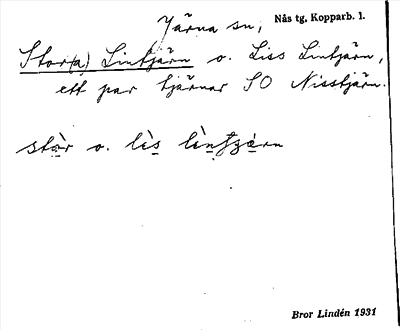 Järna sn, Nås tg, Kopparb. l.
Stor(a) Lintjärn o. Liss Lintjärn,
ett par tjärnar SO Nisstjärn.
stòr o. lès lèntjæ̀rn
Bror Lindén 1931